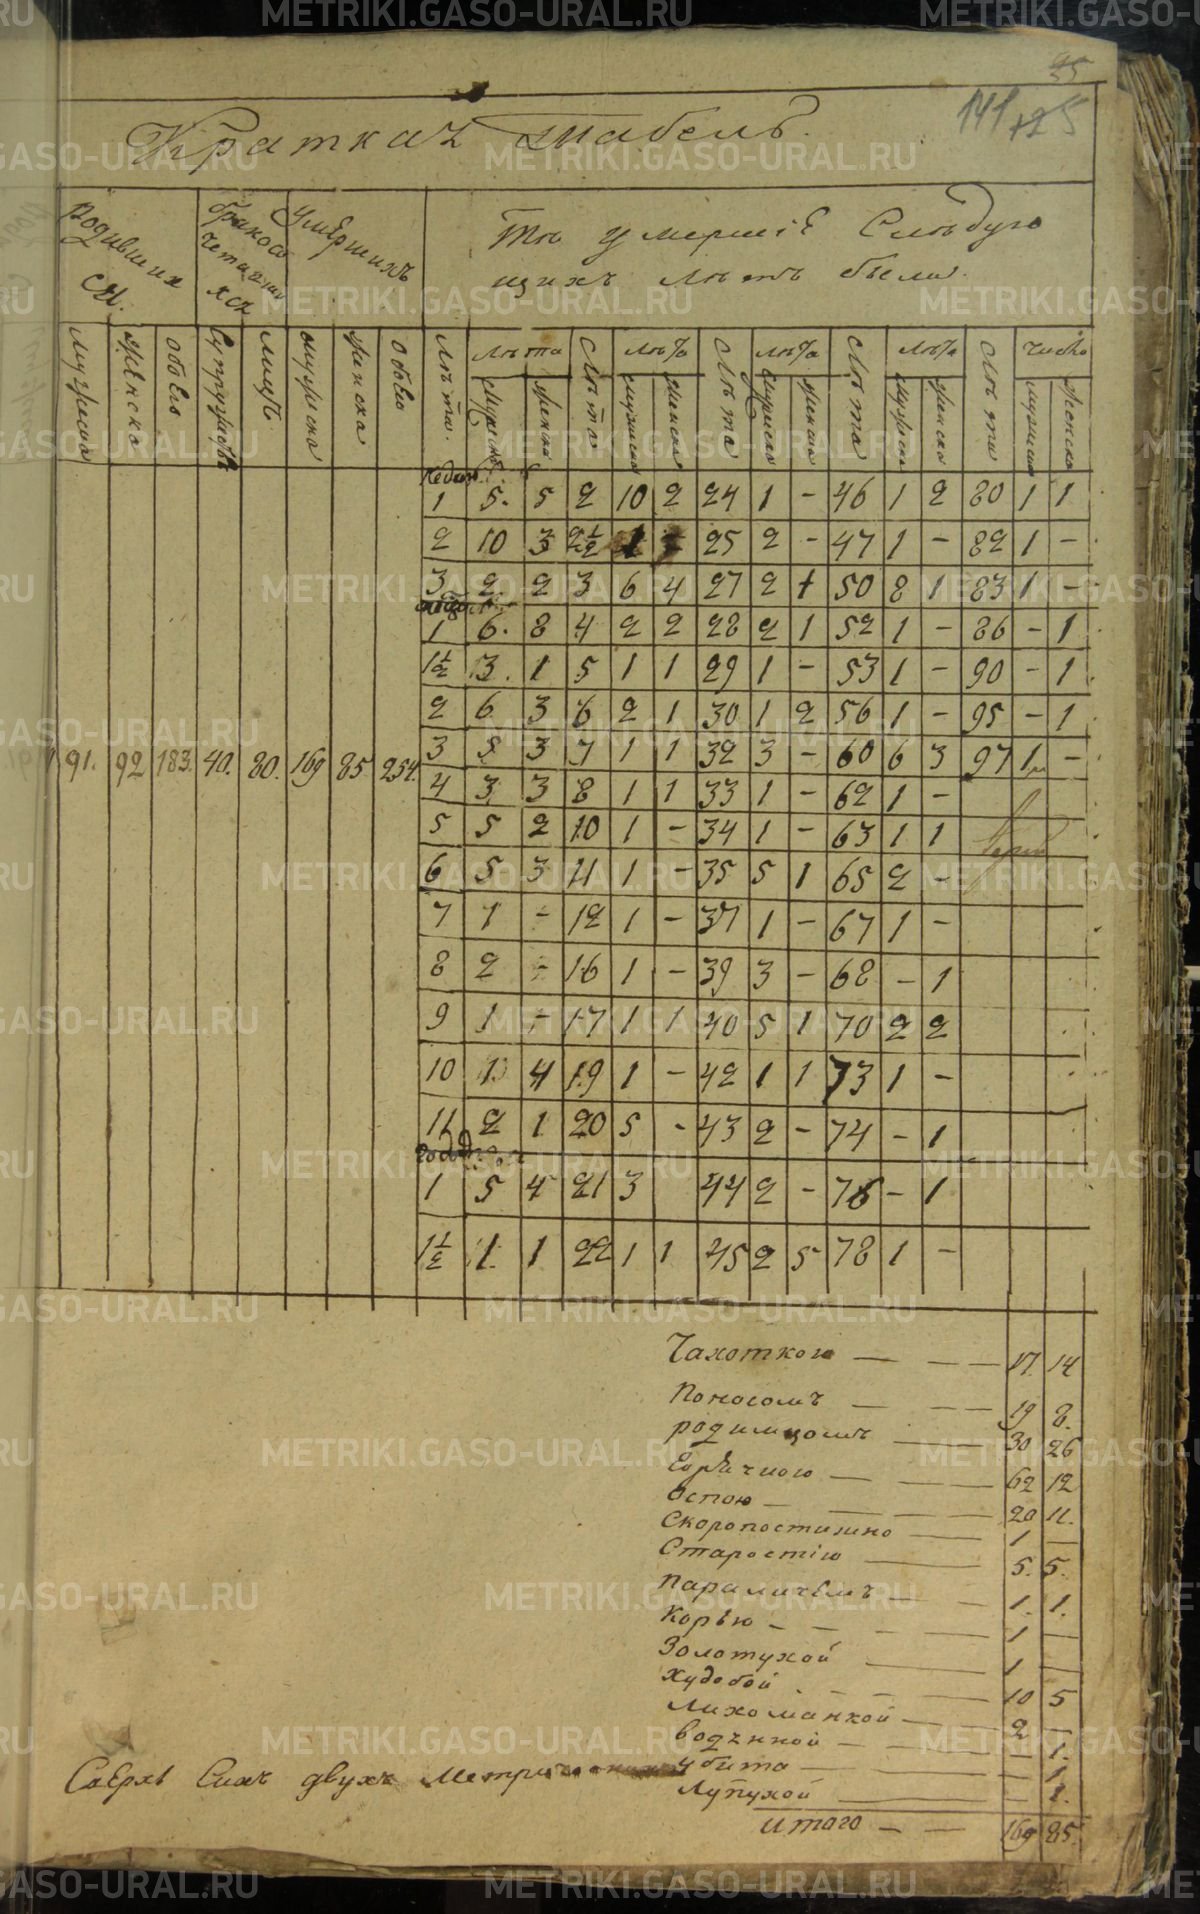 25
141
Краткая табель.
Родивших
ся.
бракосо
четавши
хся
Умершихъ
Тѣ умершіе Слѣдую
щихъ лѣтъ были.
мужеска женска обоего супружествъ лицъ мужеска женска обоего лѣта. лѣта лѣта лѣта лѣта
число
мужеска женска
недѣль
1 5. 5 2 10 2 24 1 – 46 1 2 80 1 1
2 10 3 2½ 1 25 2 – 47 1 – 82 1 –
3 2 2 3 6 4 27 2 1 50 8 1 83 1 –
1 6. 8 4 2 2 28 2 1 52 1 – 86 – 1
1½ 3. 1 5 1 1 29 1 – 53 1 – 90 – 1
2 6 3 6 2 1 30 1 2 56 1 – 95 – 1
91. 92 183. 40. 80. 169 85 254. 3 5 3 7 1 1 32 3 – 60 6 3 97 1 –
4 3 3 8 1 1 33 1 – 62 1 –
5 5 2 10 1 – 34 1 – 63 1 1
6 5 3 11 1 – 35 5 1 65 2 –
7 1 – 12 1 – 37 1 – 67 1 –
8 2 – 16 1 – 39 3 – 68 – 1
9 1 – 17 1 1 40 5 1 70 2 2
10 1 4 19 1 – 42 1 1 73 1 –
11 2 1 20 5 – 43 2 – 74 – 1
1 5 4 21 3 44 2 – 76 – 1
1½ 1 1 22 1 1 45 2 5 78 1 –
Чахоткою — — — 17. 14
Поносомъ — — — 19 8.
родимцомъ — 30 26
Горячкою — — 62 12
Оспою — — — 20 11.
Скоропостижно — 1 —
Старостію — 5. 5.
Параличемъ — — 1. 1.
Корью — — — — 1 —
Золотухой — 1 —
Худобой — — — 10 5
Лихоманкой — — 2 —
водяной — — — — 1.
убита — — — 1.
Лупухой — — 1.
Итого — — 169 85.
Сверхъ Сихъ двухъ
METRIKI.GASO-URAL.RU